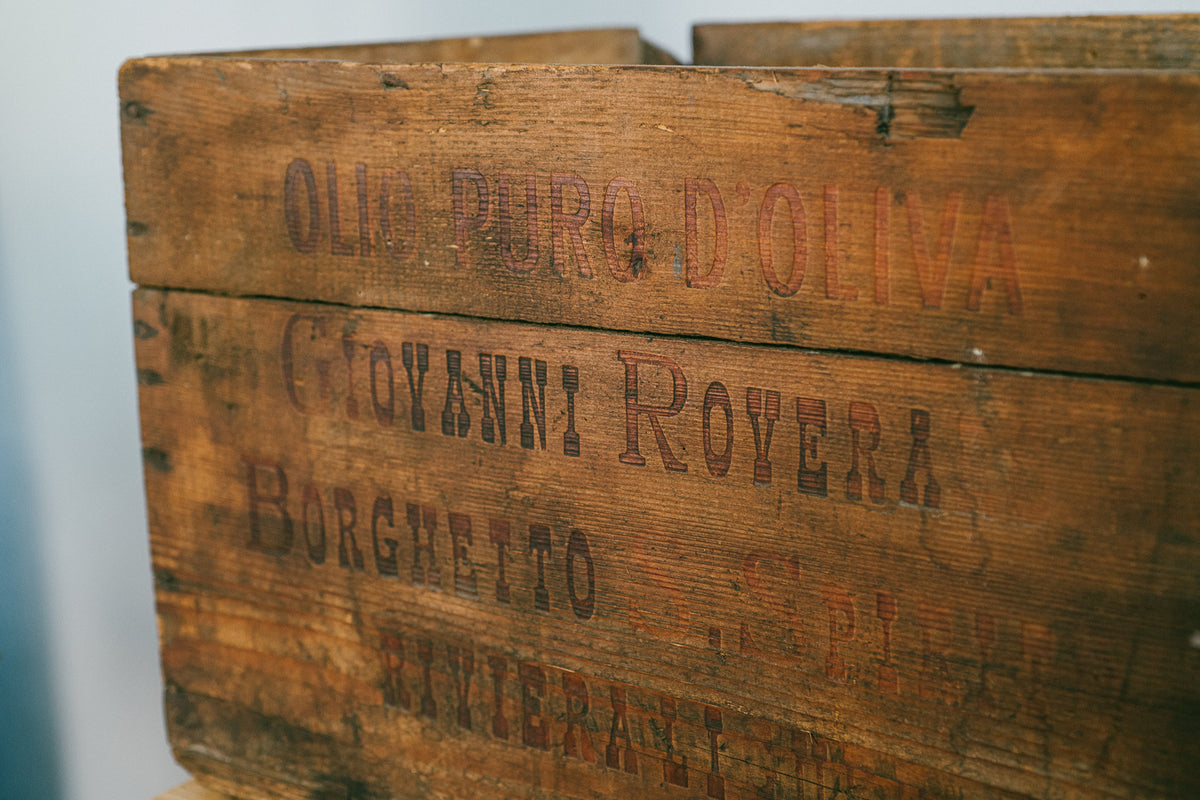 OLIO PURO D'OLIVA
GIOVANNI ROVERA
BORGHETTO S. SPIRITO
RIVIERA LI